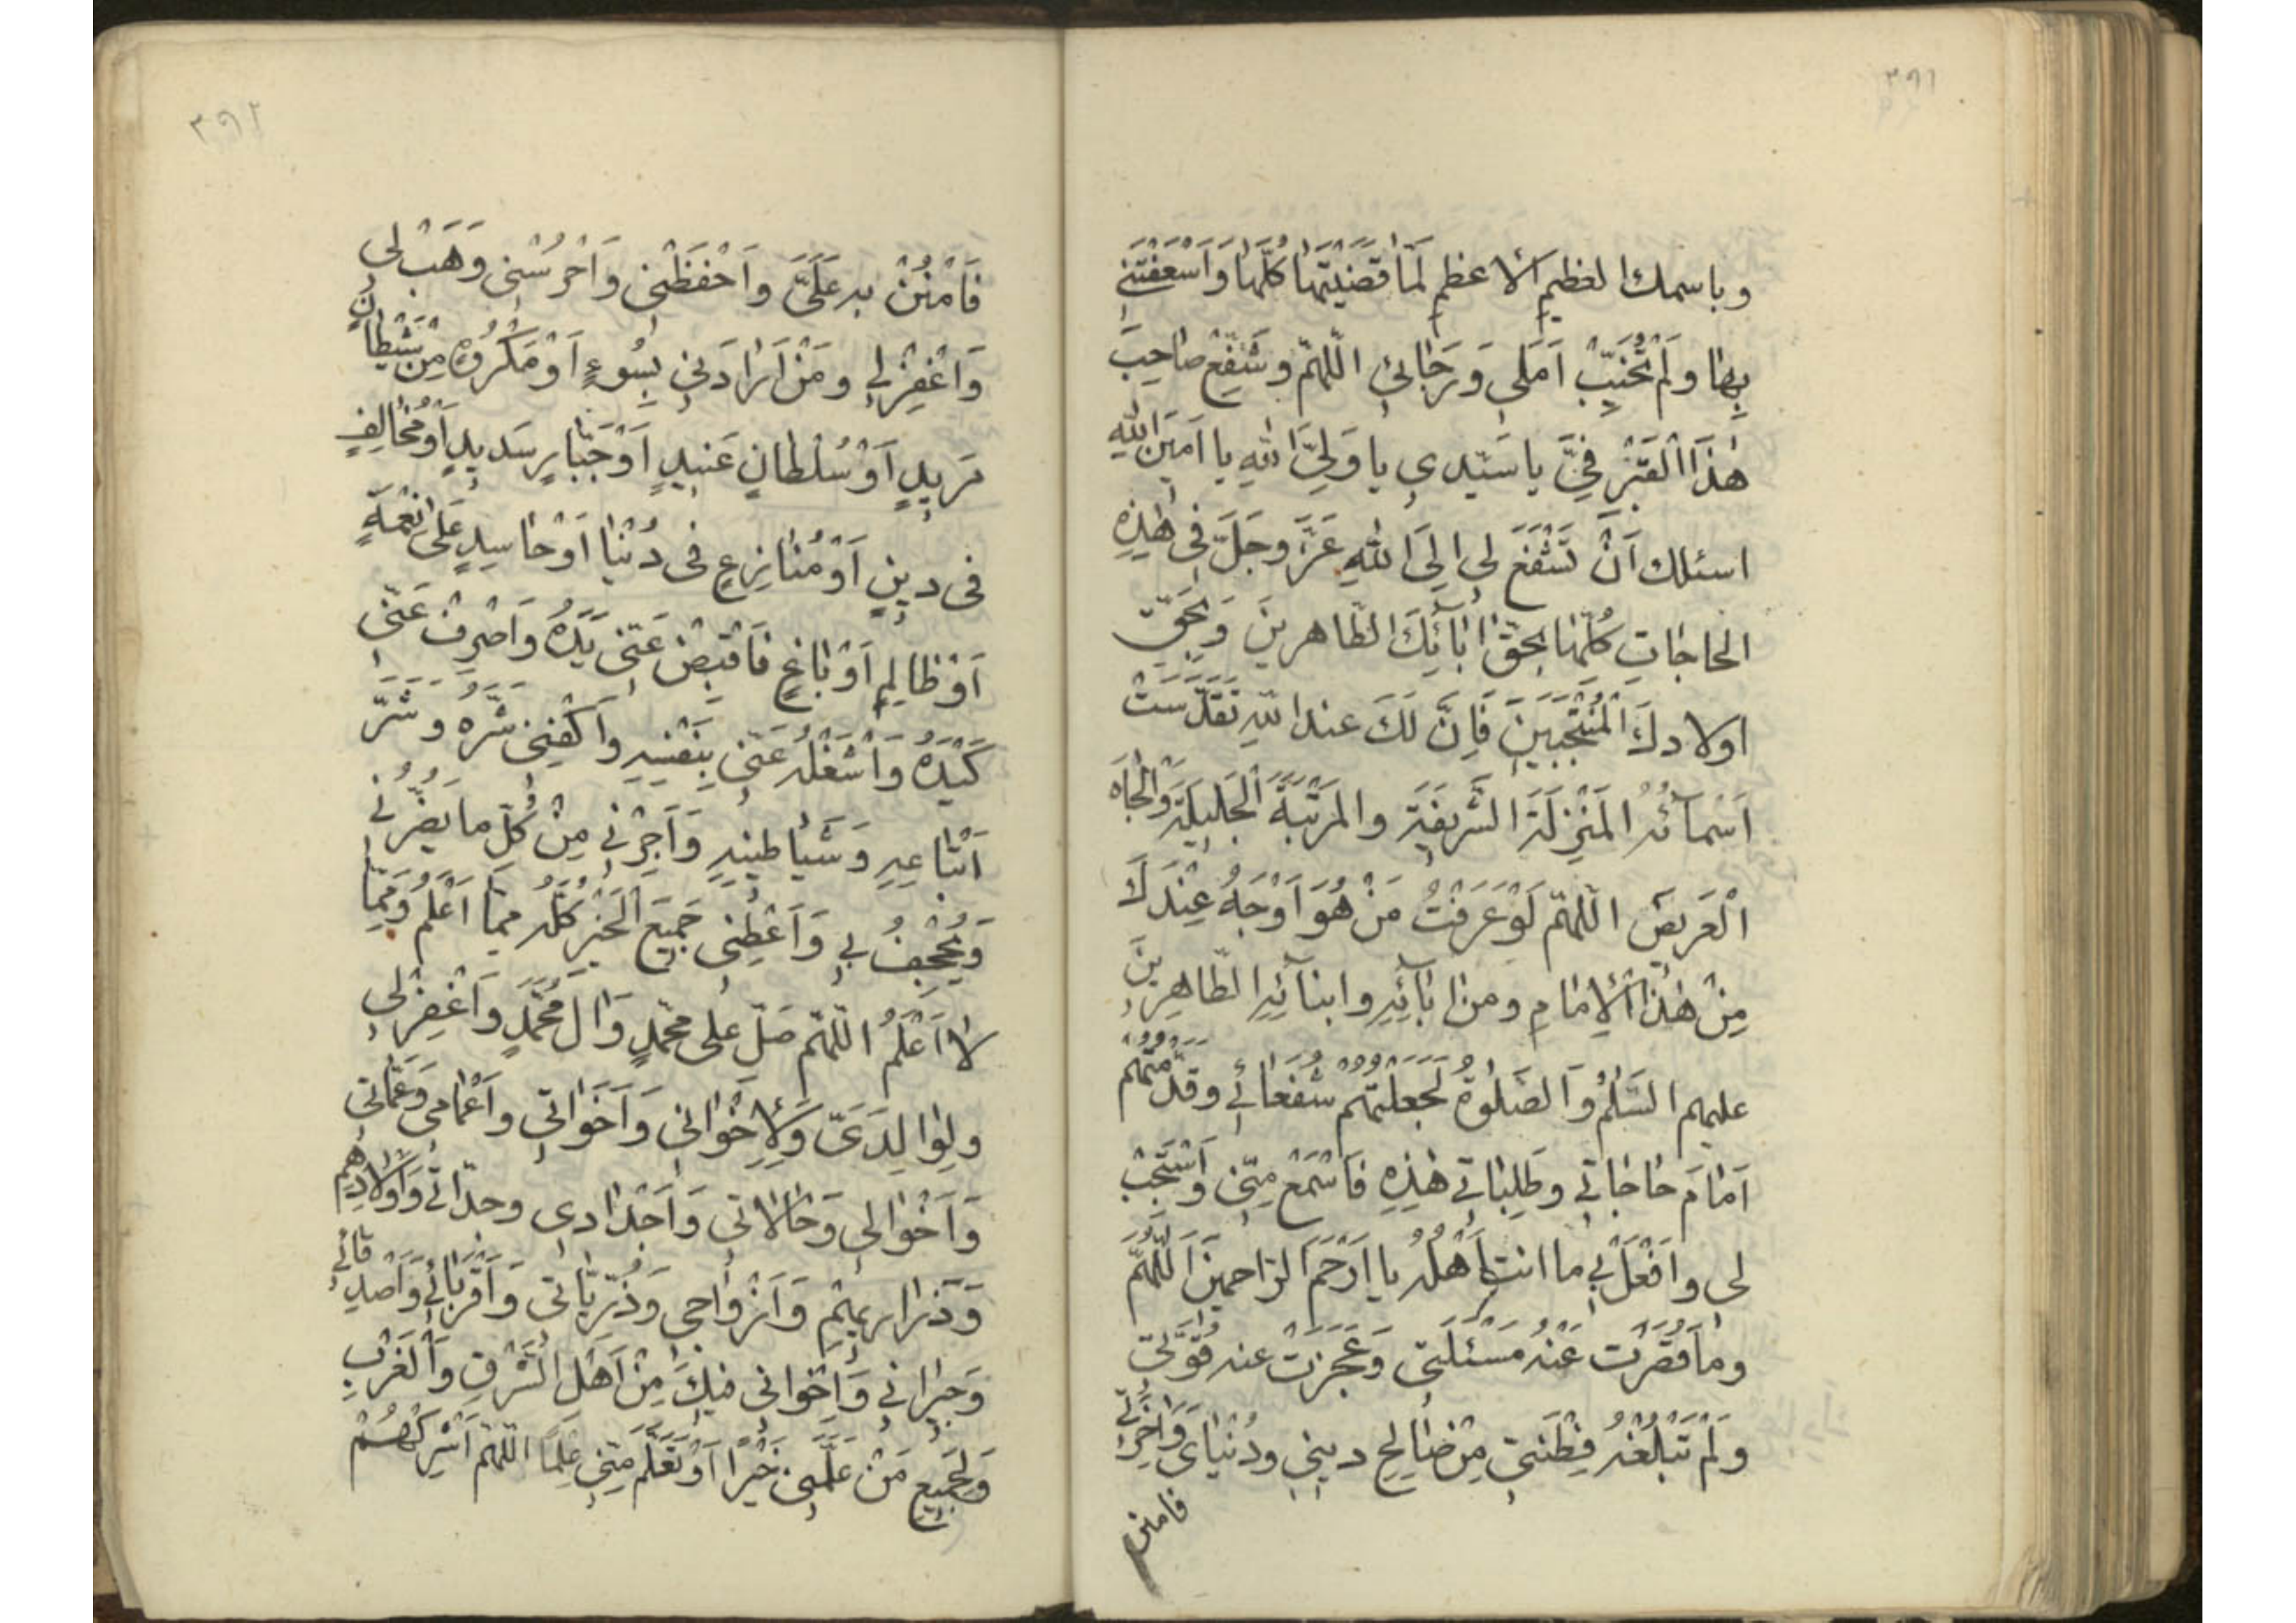 ٣٩١
وباسمك العظيم الأعظم لَمّا قَضَيْتَها كُلَّها وَاَسْعَفْتَني
بِها ولَمْ تُخَيِّبْ اَمَلي وَرَجائي اللّهمّ وشَفِّعْ صاحِبَ
هٰذَا الْقَبْرِ فِيَّ يا سَيّدي يا وَلِيَّ اللهِ يا اَمينَ اللهِ
اسئلك اَنْ تَشْفَعَ لي اِلَى اللهِ عَزَّ وجَلَّ في هٰذِهِ
الحاجاتِ كُلِّها بحَقِّ اٰبآئِكَ الطّاهرينَ وَبحَقِّ
اولادكَ الْمُنْتَجَبينَ فَاِنَّ لَكَ عند اللهِ تَقَدَّسَتْ
اَسْمآئُهُ المَنْزِلَةَ الشَّريفَةَ والمَرْتَبَةَ الْجَليلَةَ وَالْجاهَ
الْعَريضَ اللّهمّ لَوْ عَرَفْتُ مَنْ هُوَ اَوْجَهُ عِنْدَكَ
مِنْ هٰذَا الْاِمامِ ومن اٰبآئِهِ وابنآئِهِ الطّاهِرينَ
عليهم السَّلٰمُ وَالصَّلوٰةُ لَجَعَلْتُهُمْ شُفَعائي وقَدَّمْتُهُمْ
اَمامَ حاجاتي وطَلِباتي هٰذِهِ فَاسْمَعْ مِنّي وَاسْتَجِبْ
لي وافْعَلْ بي ما انت اَهْلُهُ يا اَرْحَمَ الرّاحمينَ اَللّهُمَّ
وما قَصُرَتْ عَنْهُ مَسْئَلَتي وَعَجَزَتْ عنه قُوَّتي
ولَمْ تَبْلُغْهُ فِطْنَتي مِنْ صٰالِحِ ديني ودُنْيايَ وَاٰخِرَتي
فامنن
٣٩٢
فَامْنُنْ به عَلَيَّ وَاحْفَظْني وَاحْرُسْني وَهَبْ لي
وَاغْفِرْلي ومَنْ اَرادَني بِسُوءٍ اَوْ مَكْرُوهٍ مِنْ شَيْطانٍ
مَريدٍ اَوْ سُلْطانٍ عَنيدٍ اَوْ جَبّارٍ سَديدٍ اَوْ مُخالِفٍ
في دينٍ اَوْ مُنازِعٍ في دُنْيا اَوْ حاسِدٍ عَلَى نِعْمَةٍ
اَوْ ظالِمٍ اَوْ باغٍ فَاقْبِضْ عَنّي يَدَهُ وَاصْرِفْ عَنّي
كَيْدَهُ وَاشْغَلْهُ عَنّي بِنَفْسِهِ وَاكْفِني شَرَّهُ وَشَرَّ
اَتْباعِهِ وَشَياطينِهِ وَاَجِرْني مِنْ كُلّ ما يَضُرُّني
وَيُجْحِفُ بي وَاَعْطِني جَميعَ الْخَيْرِ كُلَّهُ ممّا اَعْلَمُ وَمِمّا
لا اَعْلَمُ اللّهمّ صَلِّ على محمّدٍ وَاٰلِ مُحَمَّدٍ وَاغْفِرْلي
ولِوالِدَيَّ وَلِاِخْواني وَاَخَواتي واَعْمامي وَعَمّاتي
وَاَخْوالي وَخالاتي وَاَجْدادي وجدّاتي وَاَوْلادِهِمْ
وَذَراريهِمْ وَاَزْواجي وَذُرِّيّاتي وَاَقْرِبائي وَاَصْدِقائي
وَجيراني وَاِخْواني فيكَ مِنْ اَهْلِ الشَّرْقِ وَالْغَرْبِ
وَلِجَميعِ مَنْ عَلَّمَني خَيْرًا اَوْ تَعَلَّمَ مِنّي عِلْمًا اللّهمّ اَشْرِكْهُمْ